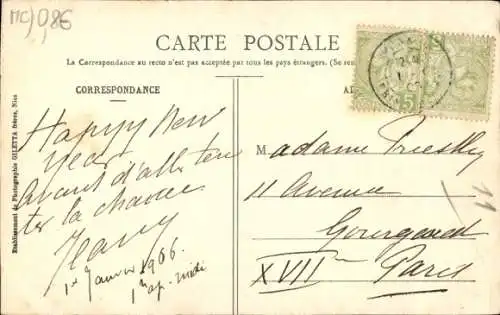 MC)086
CARTE POSTALE
La Correspondance au recto n'est pas acceptée par tous les pays étrangers. (Se ren
CORRESPONDANCE
Etablissement de Photographie GILETTA frères, Nice
Happy New
Year
Avant d'aller ten
ter la chance
1er Janvier 1906.
1h ap. midi
5
Madame Priestley
11 Avenue
Gourgaud
XVIIe Paris